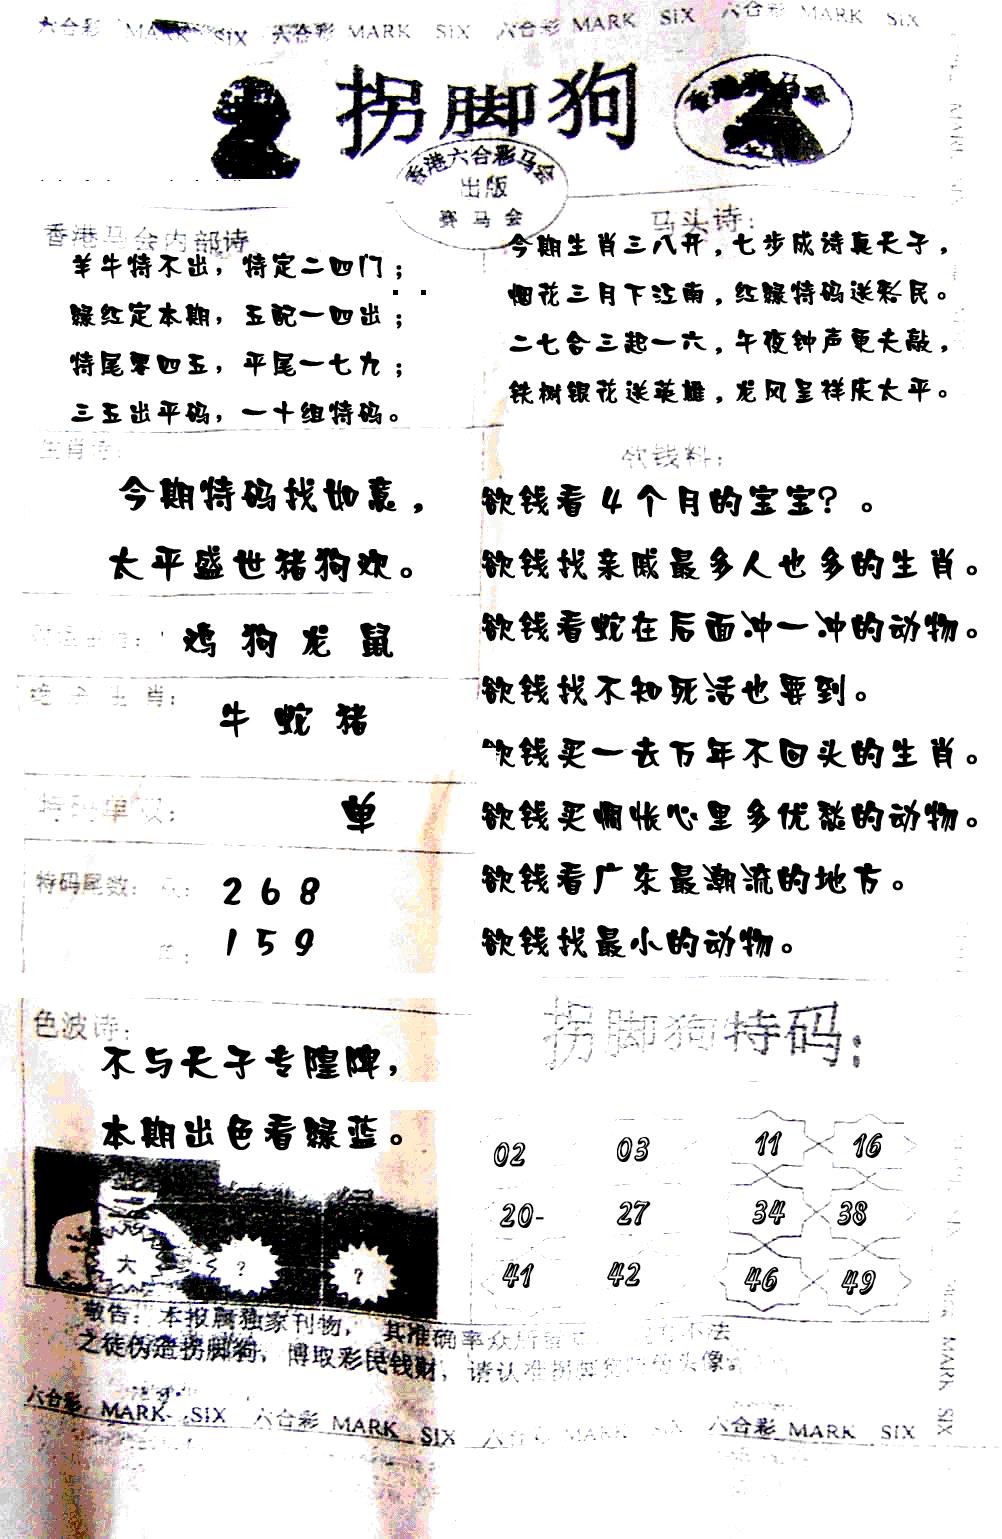 六合彩 MARK SIX 六合彩 MARK SIX 六合彩 MARK SIX 六合彩 MARK SIX
拐脚狗
香港六合彩马会
出版
赛马会
香港马会内部诗
羊牛特不出，特定二四门；
绿红定本期，五配一四出；
特尾零四五，平尾一七九；
三五出平码，一十组特码。
马头诗：
今期生肖三八开，七步成诗真天子，
烟花三月下江南，红绿特码送彩民。
二七合三起一六，午夜钟声更夫敲，
铁树银花送英雄，龙凤呈祥庆太平。
生肖诗：
今期特码找如意，
太平盛世猪狗欢。
鸡 狗 龙 鼠
绝杀生肖：
牛 蛇 猪
特码单双：
单
特码尾数：
2 6 8
1 5 9
色波诗：
不与天子专隍牌，
本期出色看绿蓝。
大 ? ?
欲钱料：
欲钱看4个月的宝宝？。
欲钱找亲戚最多人也多的生肖。
欲钱看蛇在后面冲一冲的动物。
欲钱找不知死活也要到。
欲钱买一去万年不回头的生肖。
欲钱买惆怅心里多优愁的动物。
欲钱看广东最潮流的地方。
欲钱找最小的动物。
拐脚狗特码：
02 03 11 16
20- 27 34 38
41 42 46 49
敬告：本报属独家刊物，其准确率众所 不法
之徒伪造拐脚狗，博取彩民钱财，请认准拐脚狗 头像
六合彩 MARK SIX 六合彩 MARK SIX 六合彩 MARK SIX 六合彩 MARK SIX
MARK SIX